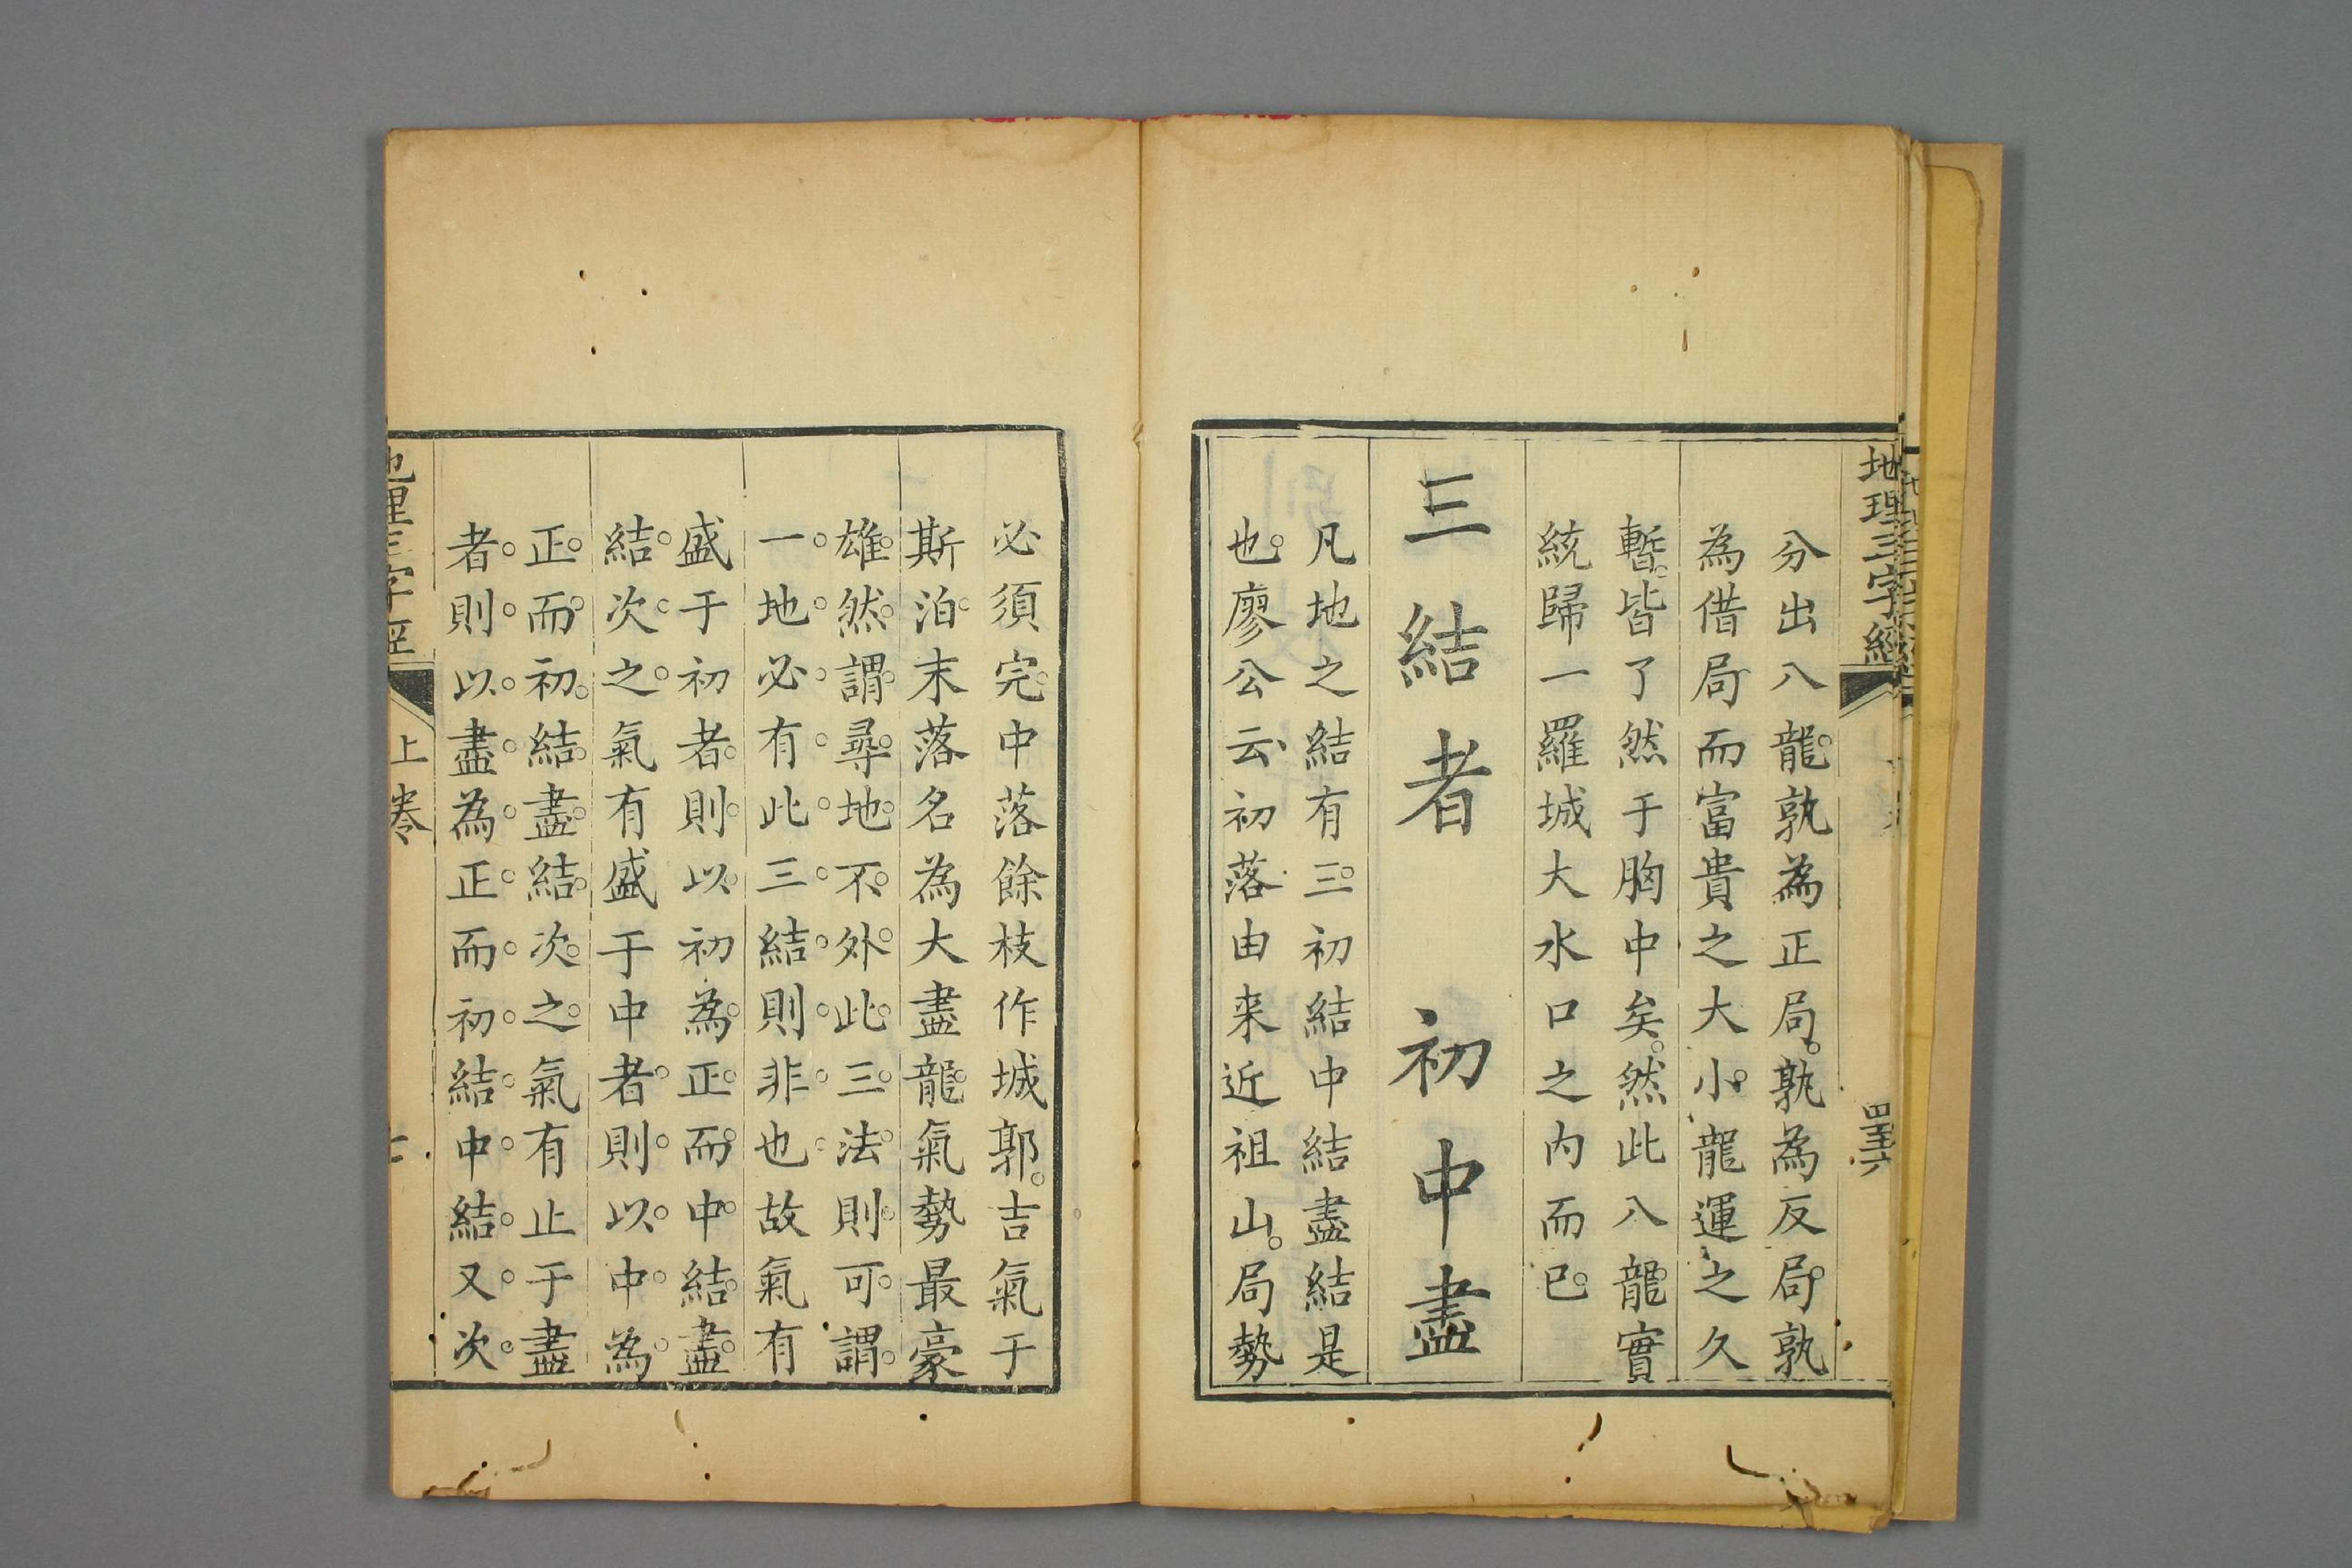 地理三字經
分出八龍孰為正局孰為反局孰
為借局而富貴之大小龍運之久
暫皆了然于胸中矣然此八龍實
統歸一羅城大水口之内而已
三結者　初中盡
凡地之結有三初結中結盡結是
也廖公云初落由来近祖山局勢
必須完中落餘枝作城郭吉氣于
斯泊末落名為大盡龍氣勢最豪
雄然謂尋地不外此三法則可謂
一地必有此三結則非也故氣有
盛于初者則以初為正而中結盡
結次之氣有盛于中者則以中為
正而初結盡結次之氣有止于盡
者則以盡為正而初結中結又次
地理三字經
上卷